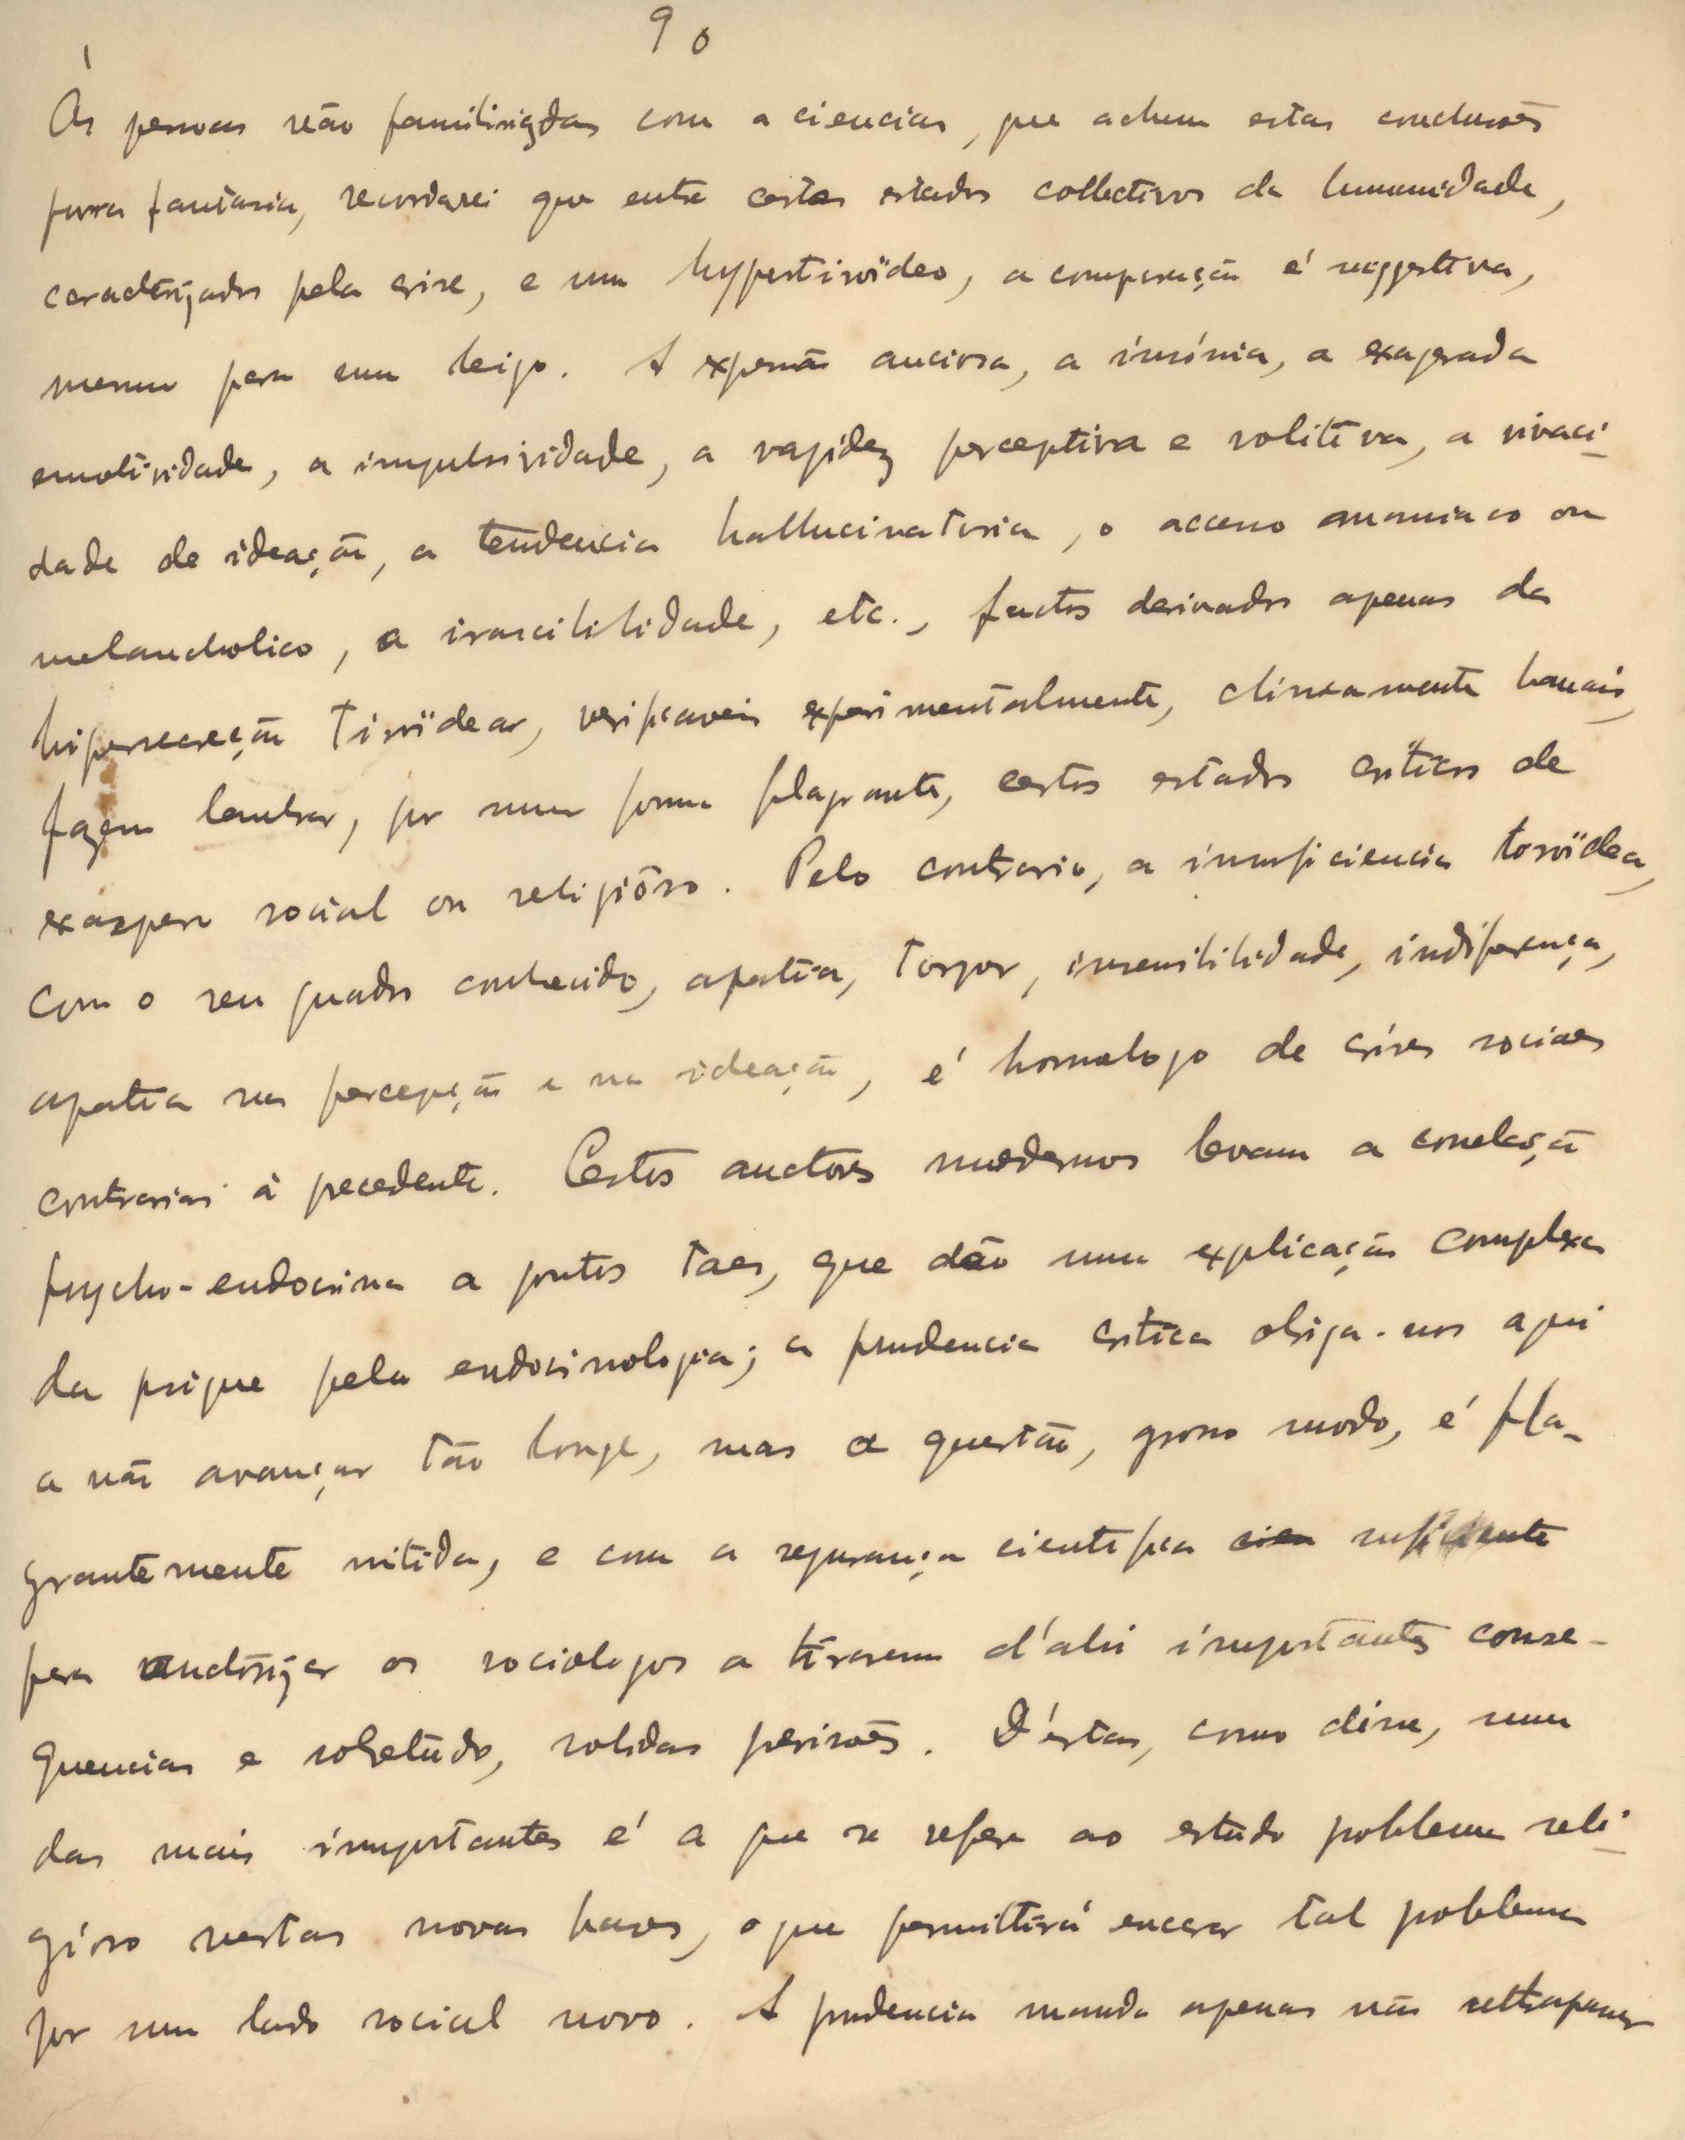 90
Ás pessoas não familiarizadas com a ciencias, que achem estas conclusões
pura fantasia, recordarei que entre certos estados collectivos da humanidade,
caracterizados pela crise, e um hypertiroïdeo, a comparação é suggestiva,
mesmo para um leigo. A expansão anciosa, a insónia, a exagerada
emotividade, a impulsividade, a rapidez perceptiva e volitiva, a vivaci-
dade de ideação, a tendencia hallucinatoria, o accesso maniaco ou
melancholico, a irascibilidade, etc., factos derivados apenas da
hipersecreção tiroïdear, verificaveis experimentalmente, clinicamente banais,
fazem lembrar, por uma forma flagrante, certos estados criticos de
exaspero social ou religiôso. Pelo contrario, a insuficiencia tiroïdea,
com o seu quadro conhecido, apatia, torpor, insensibilidade, indiferença,
apatia na percepção e na ideação, é homologo de crises sociaes
contrarias á precedente. Certos auctores modernos levam a correlação
psycho-endocrina a pontos taes, que dão uma explicação complexa
da psique pela endocrinologia; a prudencia critica obriga-nos aqui
a não avançar tão longe, mas a questão, grosso modo, é fla-
grantemente nitida, e com a segurança cientifica suficiente
para auctorizar os sociologos a tirarem d'ahi importantes conse-
quencias e sobretudo, solidas previsões. D'estas, como disse, uma
das mais importantes é a que se refere ao estudo problema reli-
gioso nestas novas bases, o que permittirá encarar tal problema
por um lado social novo. A prudencia manda apenas não ultrapassar